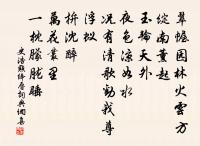 翠幄園林火雲方
綻南薰起
玉輪天外
夜色涼如水
況有清歌勸我尊
浮蟻
拚沈醉
萬花叢里
一枕朦朧睡
史浩點絳唇詞